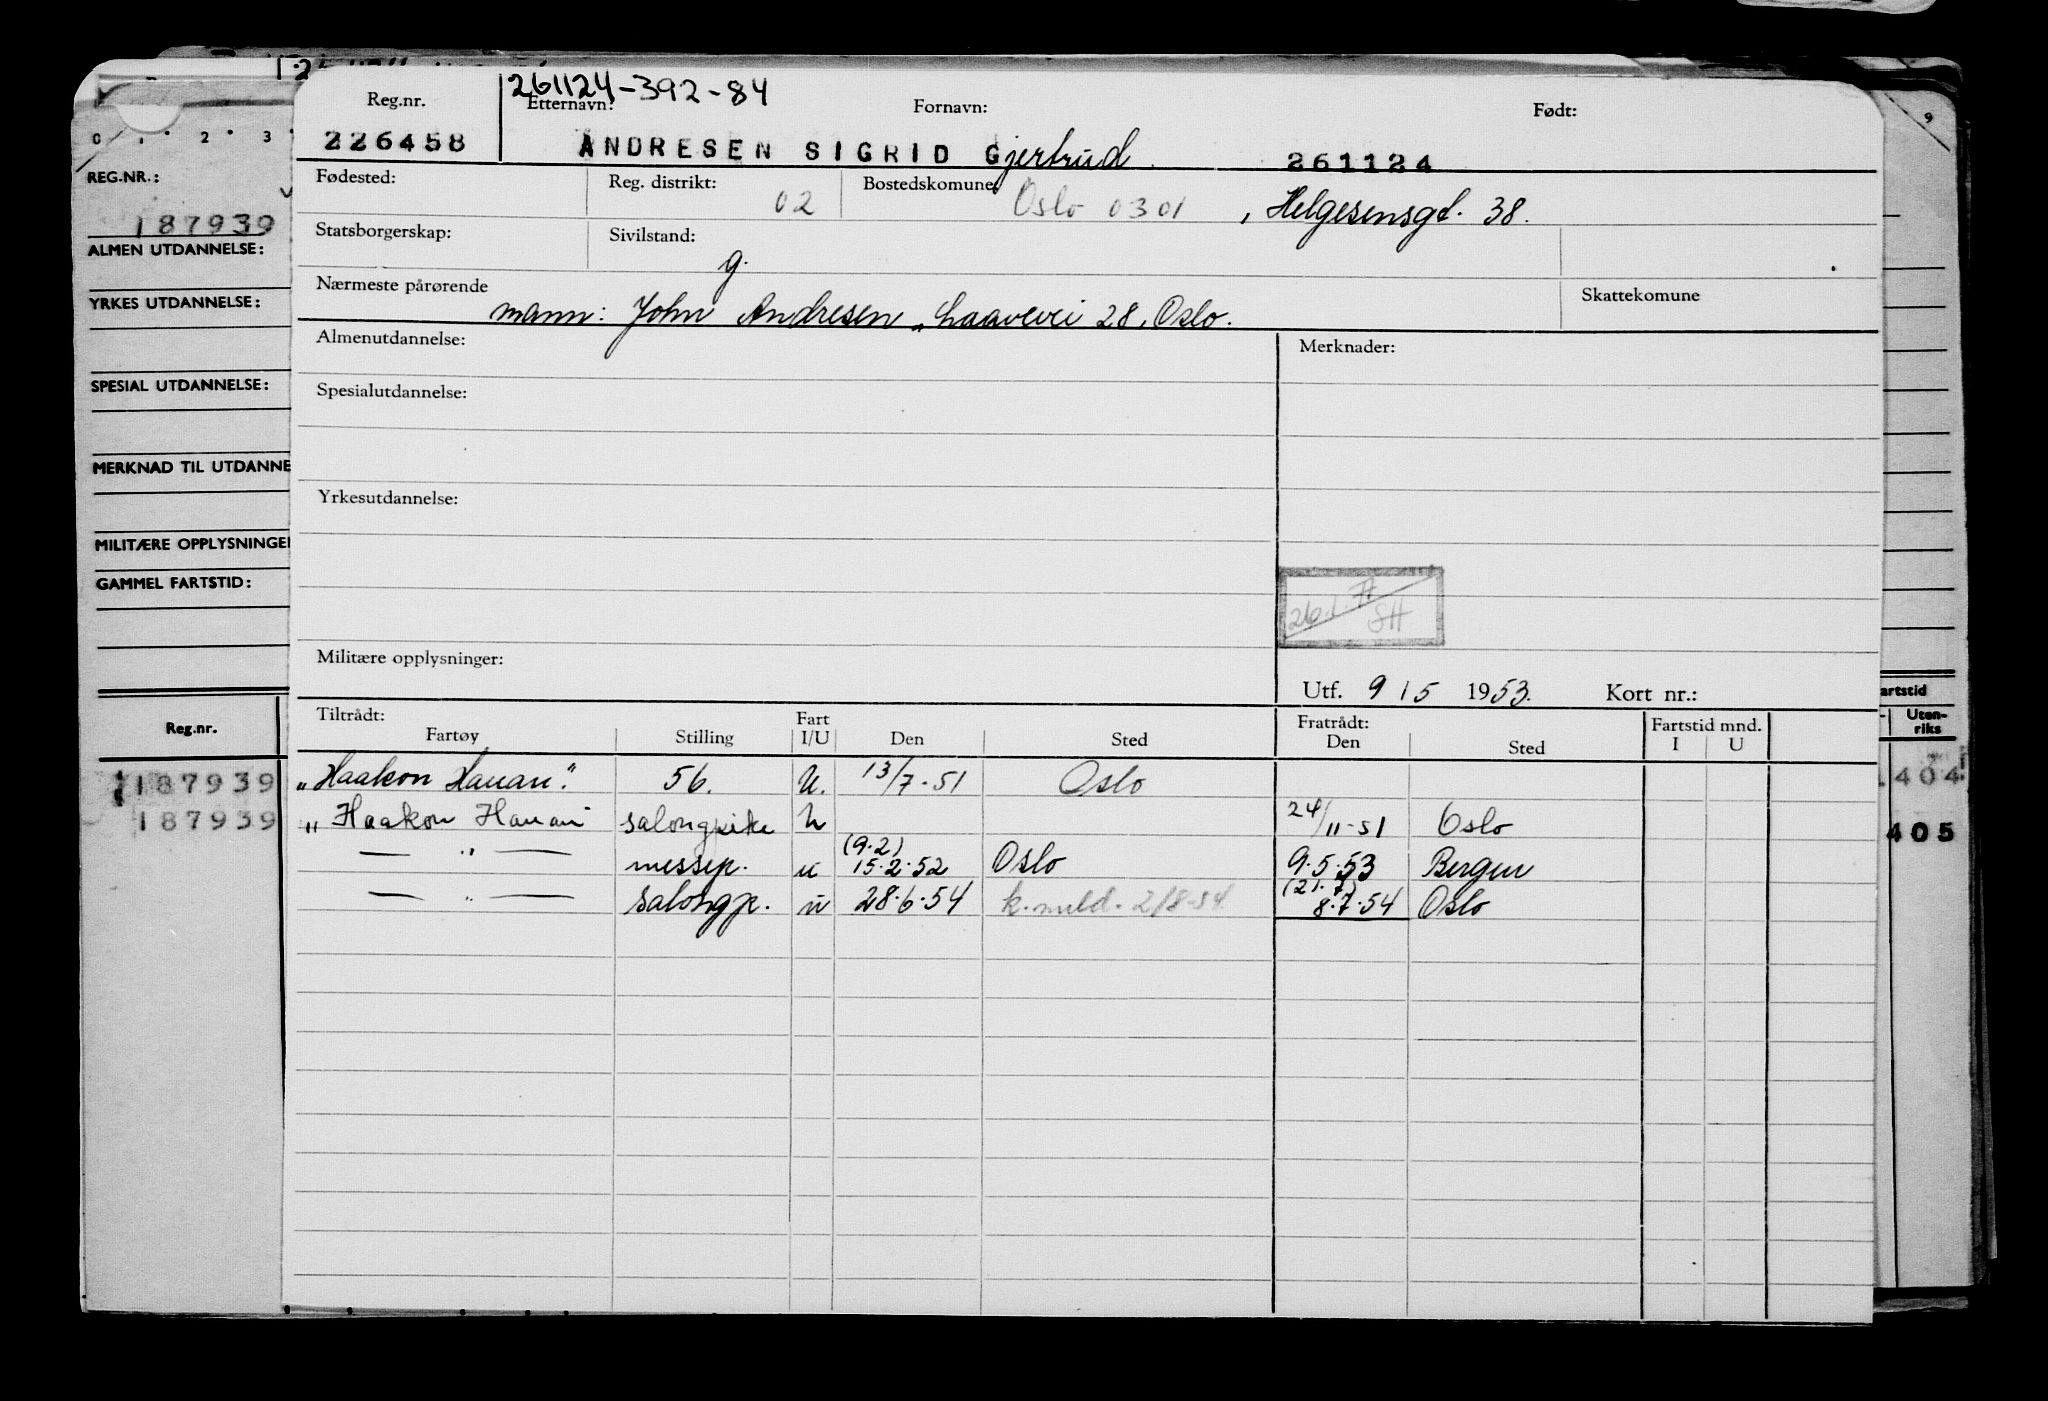 261124-392-84
Reg.nr. Etternavn: Fornavn: Født:
226458 ANDRESEN SIGRID Gjertrud 261124
Fødested: Reg. distrikt: 02 Bostedskomune: Oslo 0301, Helgesensgt. 38.
Statsborgerskap: Sivilstand: g.
Nærmeste pårørende mann: John Andresen, Laavevei 28, Oslo. Skattekomune
Almenutdannelse: Merknader:
Spesialutdannelse:
Yrkesutdannelse:
SH
Militære opplysninger:
Utf. 9/5 1953. Kort nr.:
Tiltrådt: Fratrådt: Fartstid mnd.
Fartøy Stilling Fart I/U Den Sted Den Sted I U
"Haakon Hauan". 56. U. 13/7-51 Oslo
"Haakon Hauan salongpike u 24/11-51 Oslo
— " — messep. u (9.2) 15.2.52 Oslo 9.5.53 Bergen
— " — salongp. u 28.6.54 k. meld. 2/8-54 (21.7) 8.7.54 Oslo
0 1 2 3 9
REG.NR.:
187939
ALMEN UTDANNELSE:
YRKES UTDANNELSE:
SPESIAL UTDANNELSE:
MERKNAD TIL UTDANNE
MILITÆRE OPPLYSNINGE
GAMMEL FARTSTID:
Reg.nr.
187939
187939
artstid
Uten-
riks
404
405